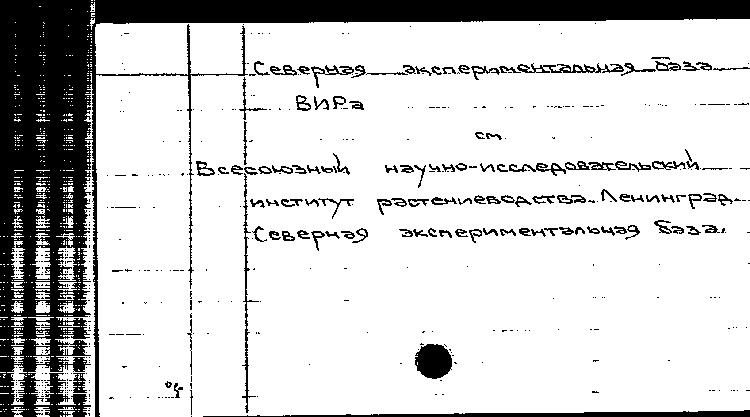 Северная экспериментальная база
ВИРа
см.
Всесоюзный научно-исследовательский
институт растениеводства. Ленинград.
Северная экспериментальная база.